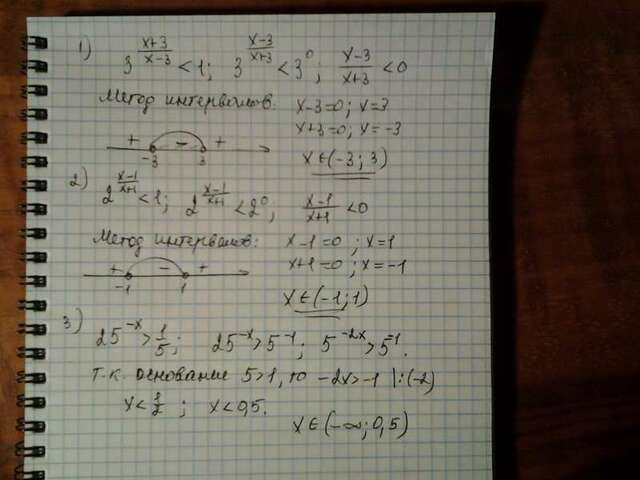 1) 3^((x+3)/(x-3)) < 1; 3^((x-3)/(x+3)) < 3^0; (x-3)/(x+3) < 0
Метод интервалов: x-3=0; x=3
x+3=0; x=-3
+ - +
-3 3
x∈(-3; 3)
2) 2^((x-1)/(x+1)) < 1; 2^((x-1)/(x+1)) < 2^0; (x-1)/(x+1) < 0
Метод интервалов: x-1=0; x=1
x+1=0; x=-1
+ - +
-1 1
x∈(-1; 1)
3) 25^(-x) > 1/5; 25^(-x) > 5^(-1); 5^(-2x) > 5^(-1).
т.к. основание 5>1, то -2x>-1 |:(-2)
x < 1/2; x < 0,5.
x∈(-∞; 0,5)